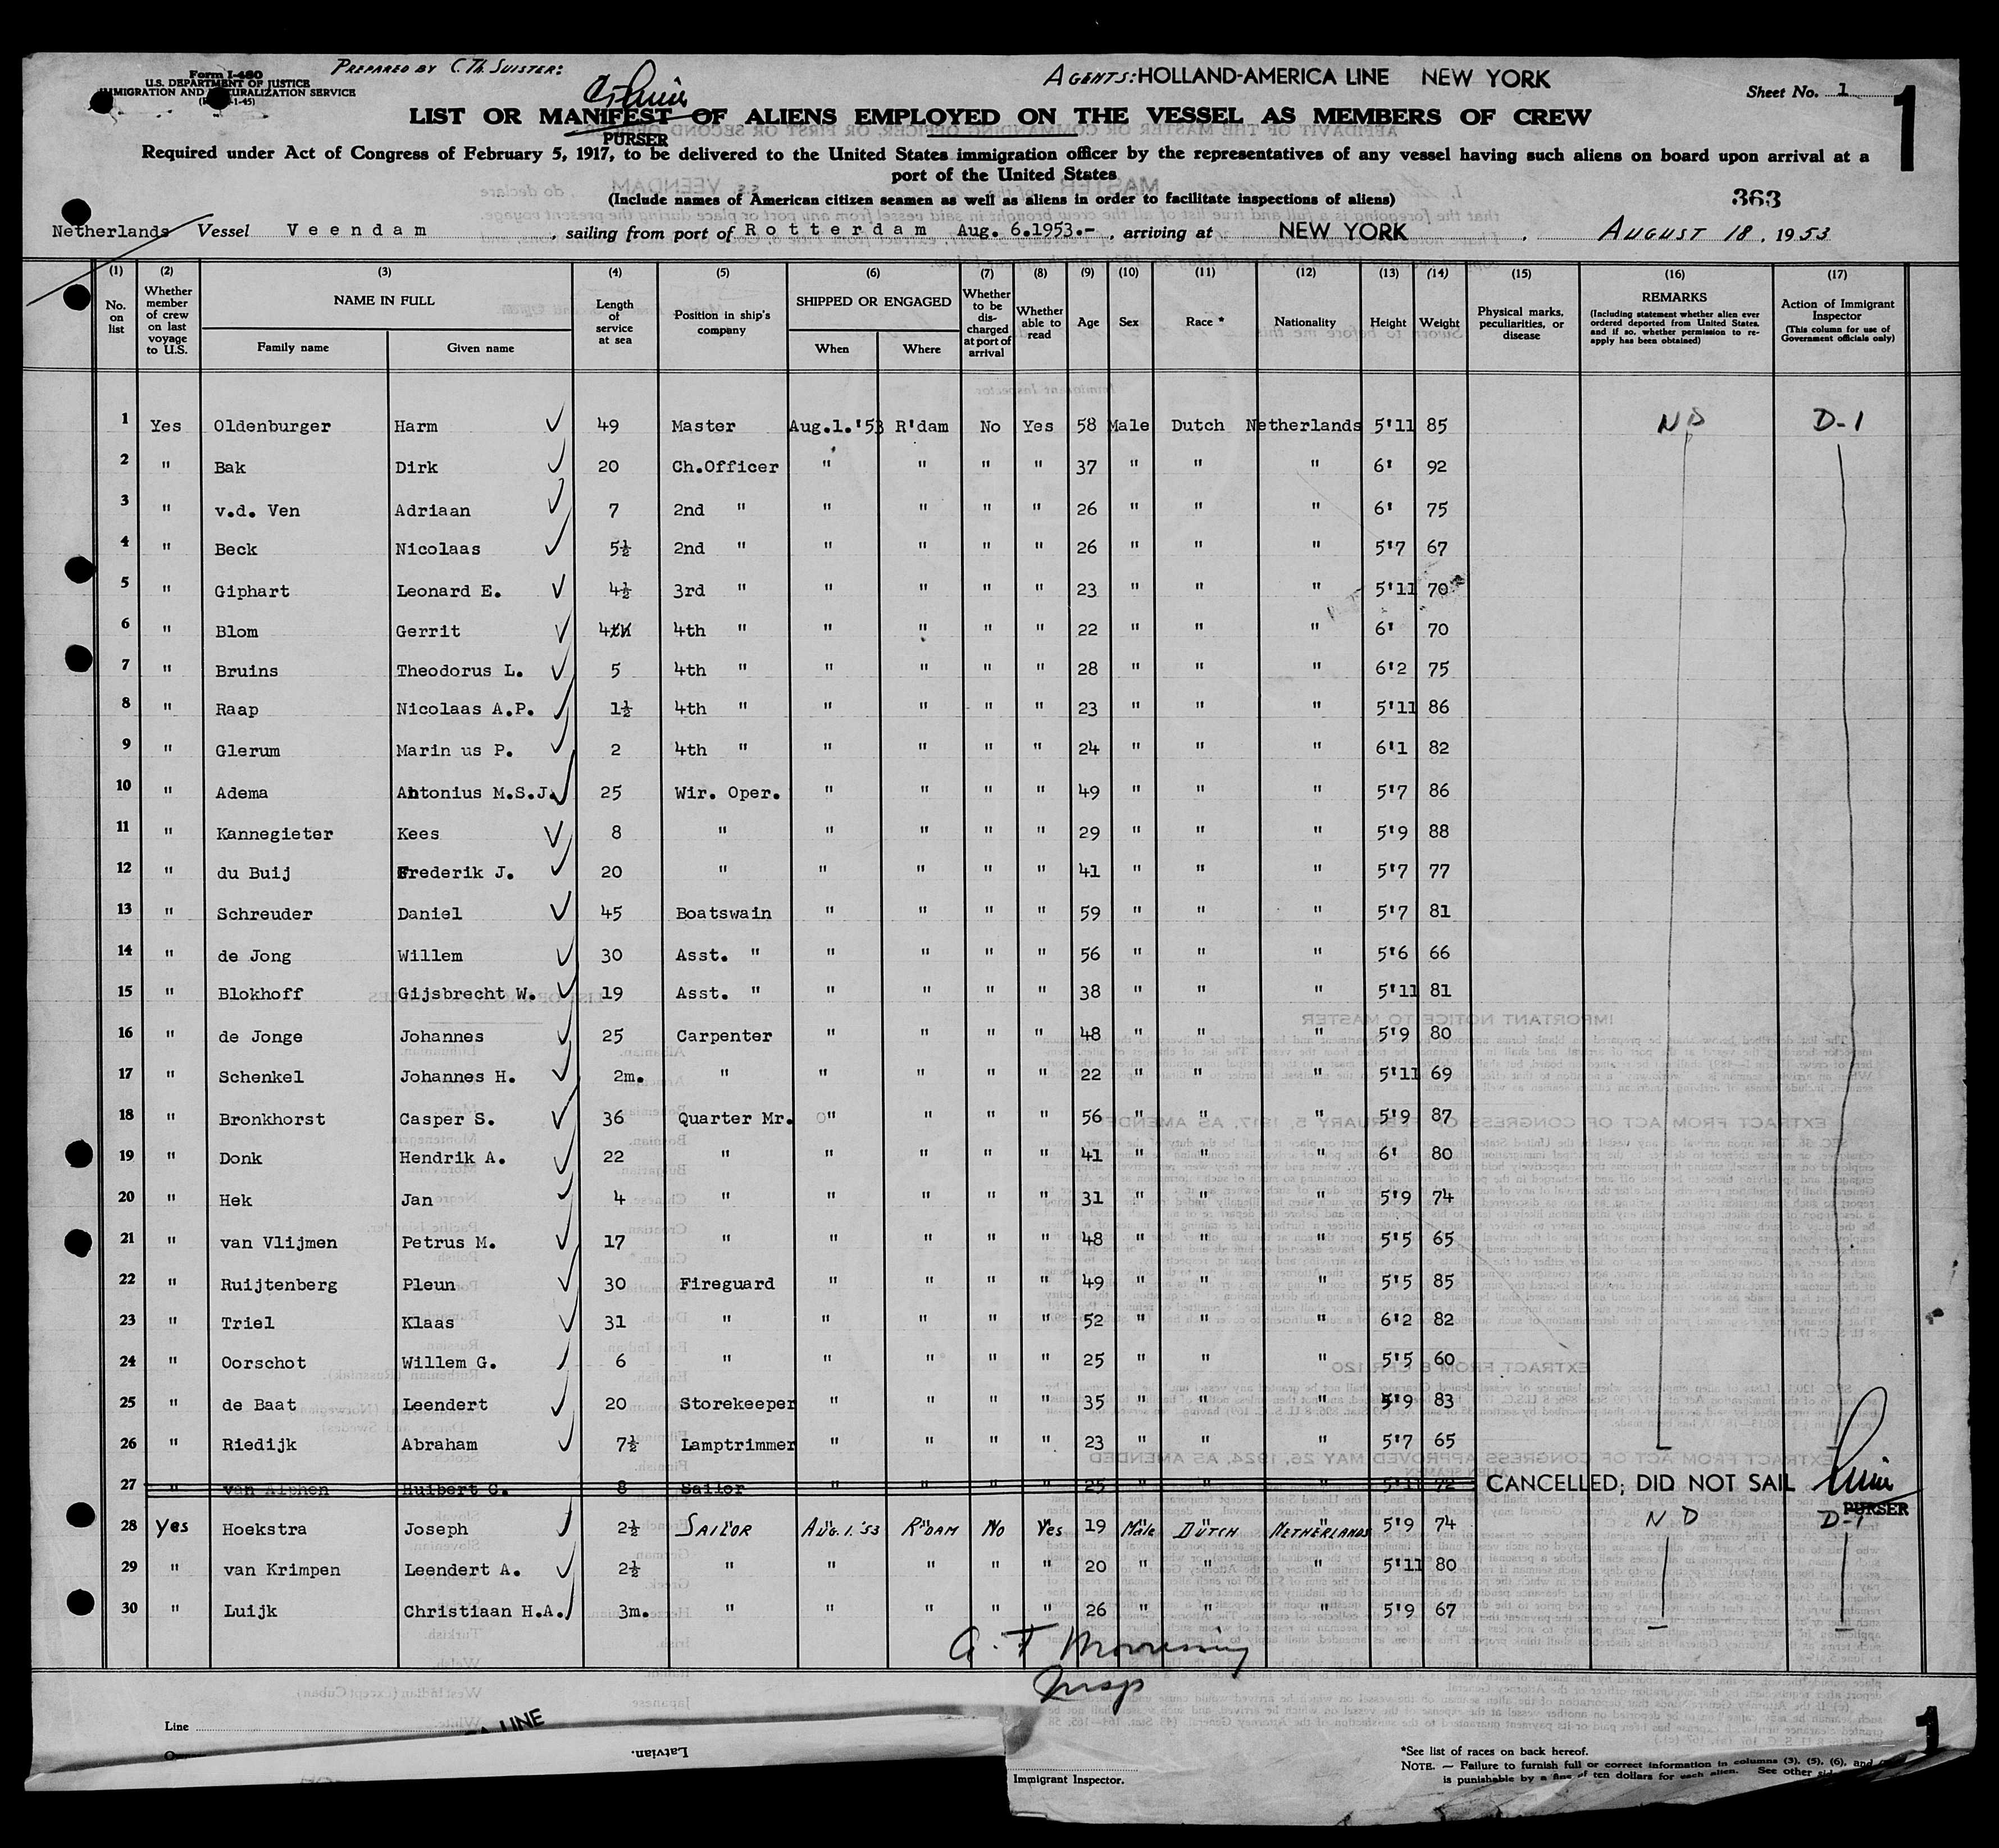 Form I-480
U.S. DEPARTMENT OF JUSTICE
IMMIGRATION AND NATURALIZATION SERVICE
PREPARED BY C. TH. SUISTER:
AGENTS: HOLLAND-AMERICA LINE NEW YORK
Sheet No. 1
1
LIST OR MANIFEST OF ALIENS EMPLOYED ON THE VESSEL AS MEMBERS OF CREW
PURSER
Required under Act of Congress of February 5, 1917, to be delivered to the United States immigration officer by the representatives of any vessel having such aliens on board upon arrival at a
port of the United States
(Include names of American citizen seamen as well as aliens in order to facilitate inspections of aliens)
363
Netherlands Vessel Veendam, sailing from port of Rotterdam Aug. 6.1953.-, arriving at NEW YORK, AUGUST 18, 1953
(1) (2) (3) (4) (5) (6) (7) (8) (9) (10) (11) (12) (13) (14) (15) (16) (17)
No. on list
Whether member of crew on last voyage to U.S.
NAME IN FULL
Family name Given name
Length of service at sea
Position in ship's company
SHIPPED OR ENGAGED
When Where
Whether to be discharged at port of arrival
Whether able to read
Age
Sex
Race *
Nationality
Height
Weight
Physical marks, peculiarities, or disease
REMARKS
(Including statement whether alien ever ordered deported from United States, and if so, whether permission to re-apply has been obtained)
Action of Immigrant Inspector
(This column for use of Government officials only)
1 Yes Oldenburger Harm 49 Master Aug.1.'53 R'dam No Yes 58 Male Dutch Netherlands 5'11 85 ND D-1
2 " Bak Dirk 20 Ch.Officer " " " " 37 " " " 6' 92
3 " v.d. Ven Adriaan 7 2nd " " " " " 26 " " " 6' 75
4 " Beck Nicolaas 5½ 2nd " " " " " 26 " " " 5'7 67
5 " Giphart Leonard E. 4½ 3rd " " " " " 23 " " " 5'11 70
6 " Blom Gerrit 4 4th " " " " " 22 " " " 6' 70
7 " Bruins Theodorus L. 5 4th " " " " " 28 " " " 6'2 75
8 " Raap Nicolaas A.P. 1½ 4th " " " " " 23 " " " 5'11 86
9 " Glerum Marin us P. 2 4th " " " " " 24 " " " 6'1 82
10 " Adema Antonius M.S.J. 25 Wir. Oper. " " " " 49 " " " 5'7 86
11 " Kannegieter Kees 8 " " " " " 29 " " " 5'9 88
12 " du Buij Frederik J. 20 " " " " " 41 " " " 5'7 77
13 " Schreuder Daniel 45 Boatswain " " " " 59 " " " 5'7 81
14 " de Jong Willem 30 Asst. " " " " " 56 " " " 5'6 66
15 " Blokhoff Gijsbrecht W. 19 Asst. " " " " " 38 " " " 5'11 81
16 " de Jonge Johannes 25 Carpenter " " " " 48 " " " 5'9 80
17 " Schenkel Johannes H. 2m. " " " " " 22 " " " 5'11 69
18 " Bronkhorst Casper S. 36 Quarter Mr. " " " " 56 " " " 5'9 87
19 " Donk Hendrik A. 22 " " " " " 41 " " " 6' 80
20 " Hek Jan 4 " " " " " 31 " " " 5'9 74
21 " van Vlijmen Petrus M. 17 " " " " " 48 " " " 5'5 65
22 " Ruijtenberg Pleun 30 Fireguard " " " " 49 " " " 5'5 85
23 " Triel Klaas 31 " " " " " 52 " " " 6'2 82
24 " Oorschot Willem G. 6 " " " " " 25 " " " 5'5 60
25 " de Baat Leendert 20 Storekeeper " " " " 35 " " " 5'9 83
26 " Riedijk Abraham 7½ Lamptrimmer " " " " 23 " " " 5'7 65
27 " van Alphen Huibert C. 8 Sailor " " " " 25 " " " 5'11 72 CANCELLED; DID NOT SAIL
PURSER
28 Yes Hoekstra Joseph 2½ SAILOR AUG.1.'53 R'DAM No Yes 19 Male DUTCH NETHERLANDS 5'9 74 ND D-1
29 " van Krimpen Leendert A. 2½ " " " " " 20 " " " 5'11 80
30 " Luijk Christiaan H.A. 3m. " " " " " 26 " " " 5'9 67
Insp
Line
LINE
Latvian.
1
Immigrant Inspector.
*See list of races on back hereof.
NOTE. — Failure to furnish full or correct information in columns (3), (5), (6), and
is punishable by a fine of ten dollars for each alien. See other